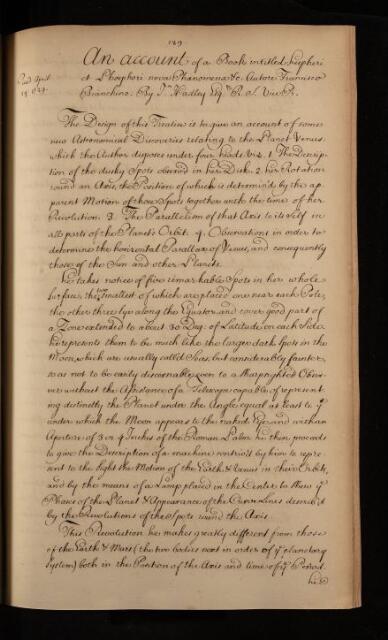 189
An account of a Book intitled Hesperi
et Phosphori nova Phænomena &c. Autore Francisco
Read April
18 0
Bianchino. By Jn. Hadley Esqr. R. S. Vice Pr.
The Design of this Treatise is to give an account of some
new Astronomical Discoveries relating to the Planet Venus,
which the Author disposes under four heads Viz. 1 The Descrip
tion of the dusky Spots observd in her Disk. 2. her Rotation
round an Axis, the Position of which is determin'd by the ap
parent Motion of those Spots together with the time of her
Revolution. 3. The Parallelism of that Axis to its self in
all parts of the Planets Orbit. 4. Observations in order to
determine the horizontal Parallax of Venus, and consequently
those of the Sun and other Planets.
He takes notice of five remarkable Spots in her whole
Surface, the Smallest of which are placed one near each Pole,
the other three lye along the Equator and cover good part of
a Zone extended to about 30 Deg: of Latitude on each Side
he represents them to be much like the larger dark Spots in the
Moon, which are usually called Seas, but considerably fainter,
so as not to be easily discernable even to a sharp sighted Obser
ver without the Assistance of a Telescope capable of represent
ing distinctly the Planet under the Angle equal at least to yt
under which the Moon appears to the naked Eye and with an
Aperture of 3 or 4 Inches of the Roman Palm. he then proceeds
to give the Description of a machine contriv'd by him to repre
sent to the sight the Motion of the Earth & Venus in their Orbits,
and by the means of a Lamp placed in the Center to shew ye
Phases of the Planet & Appearance of the Curve Lines describ'd
by the Revolutions of the Spots round the Axis.
This Revolution he makes greatly different from those
of the Earth & Mars (the two bodies next in order of ye planetary
System) both in the Position of the Axis and time of ye Period.
his